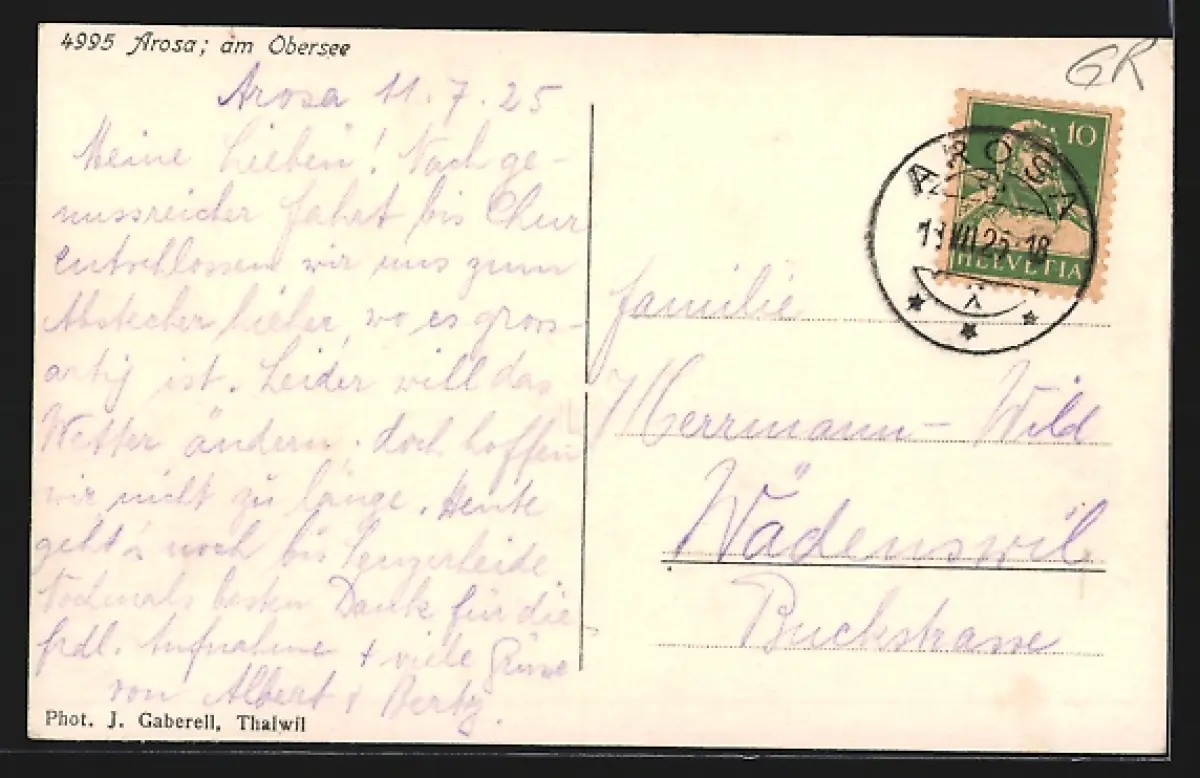 4995 Arosa; am Obersee
GR
Arosa 11.7.25
Meine Lieben! Nach ge-
nussreicher Fahrt bis Chur
entschlossen wir uns zum
Abstecher hieher, wo es gross-
artig ist. Leider will das
Wetter ändern, doch hoffen
wir nicht zu lange. Heute
geht's noch bis Lenzerheide
Nochmals besten Dank für die
frdl. Aufnahme + viele Grüsse
von Albert +
Phot. J. Gaberell, Thalwil
10
HELVETIA
AROSA
VII.25-18
Familie
Herrmann-Wild
Wädenswil
Buckstrasse